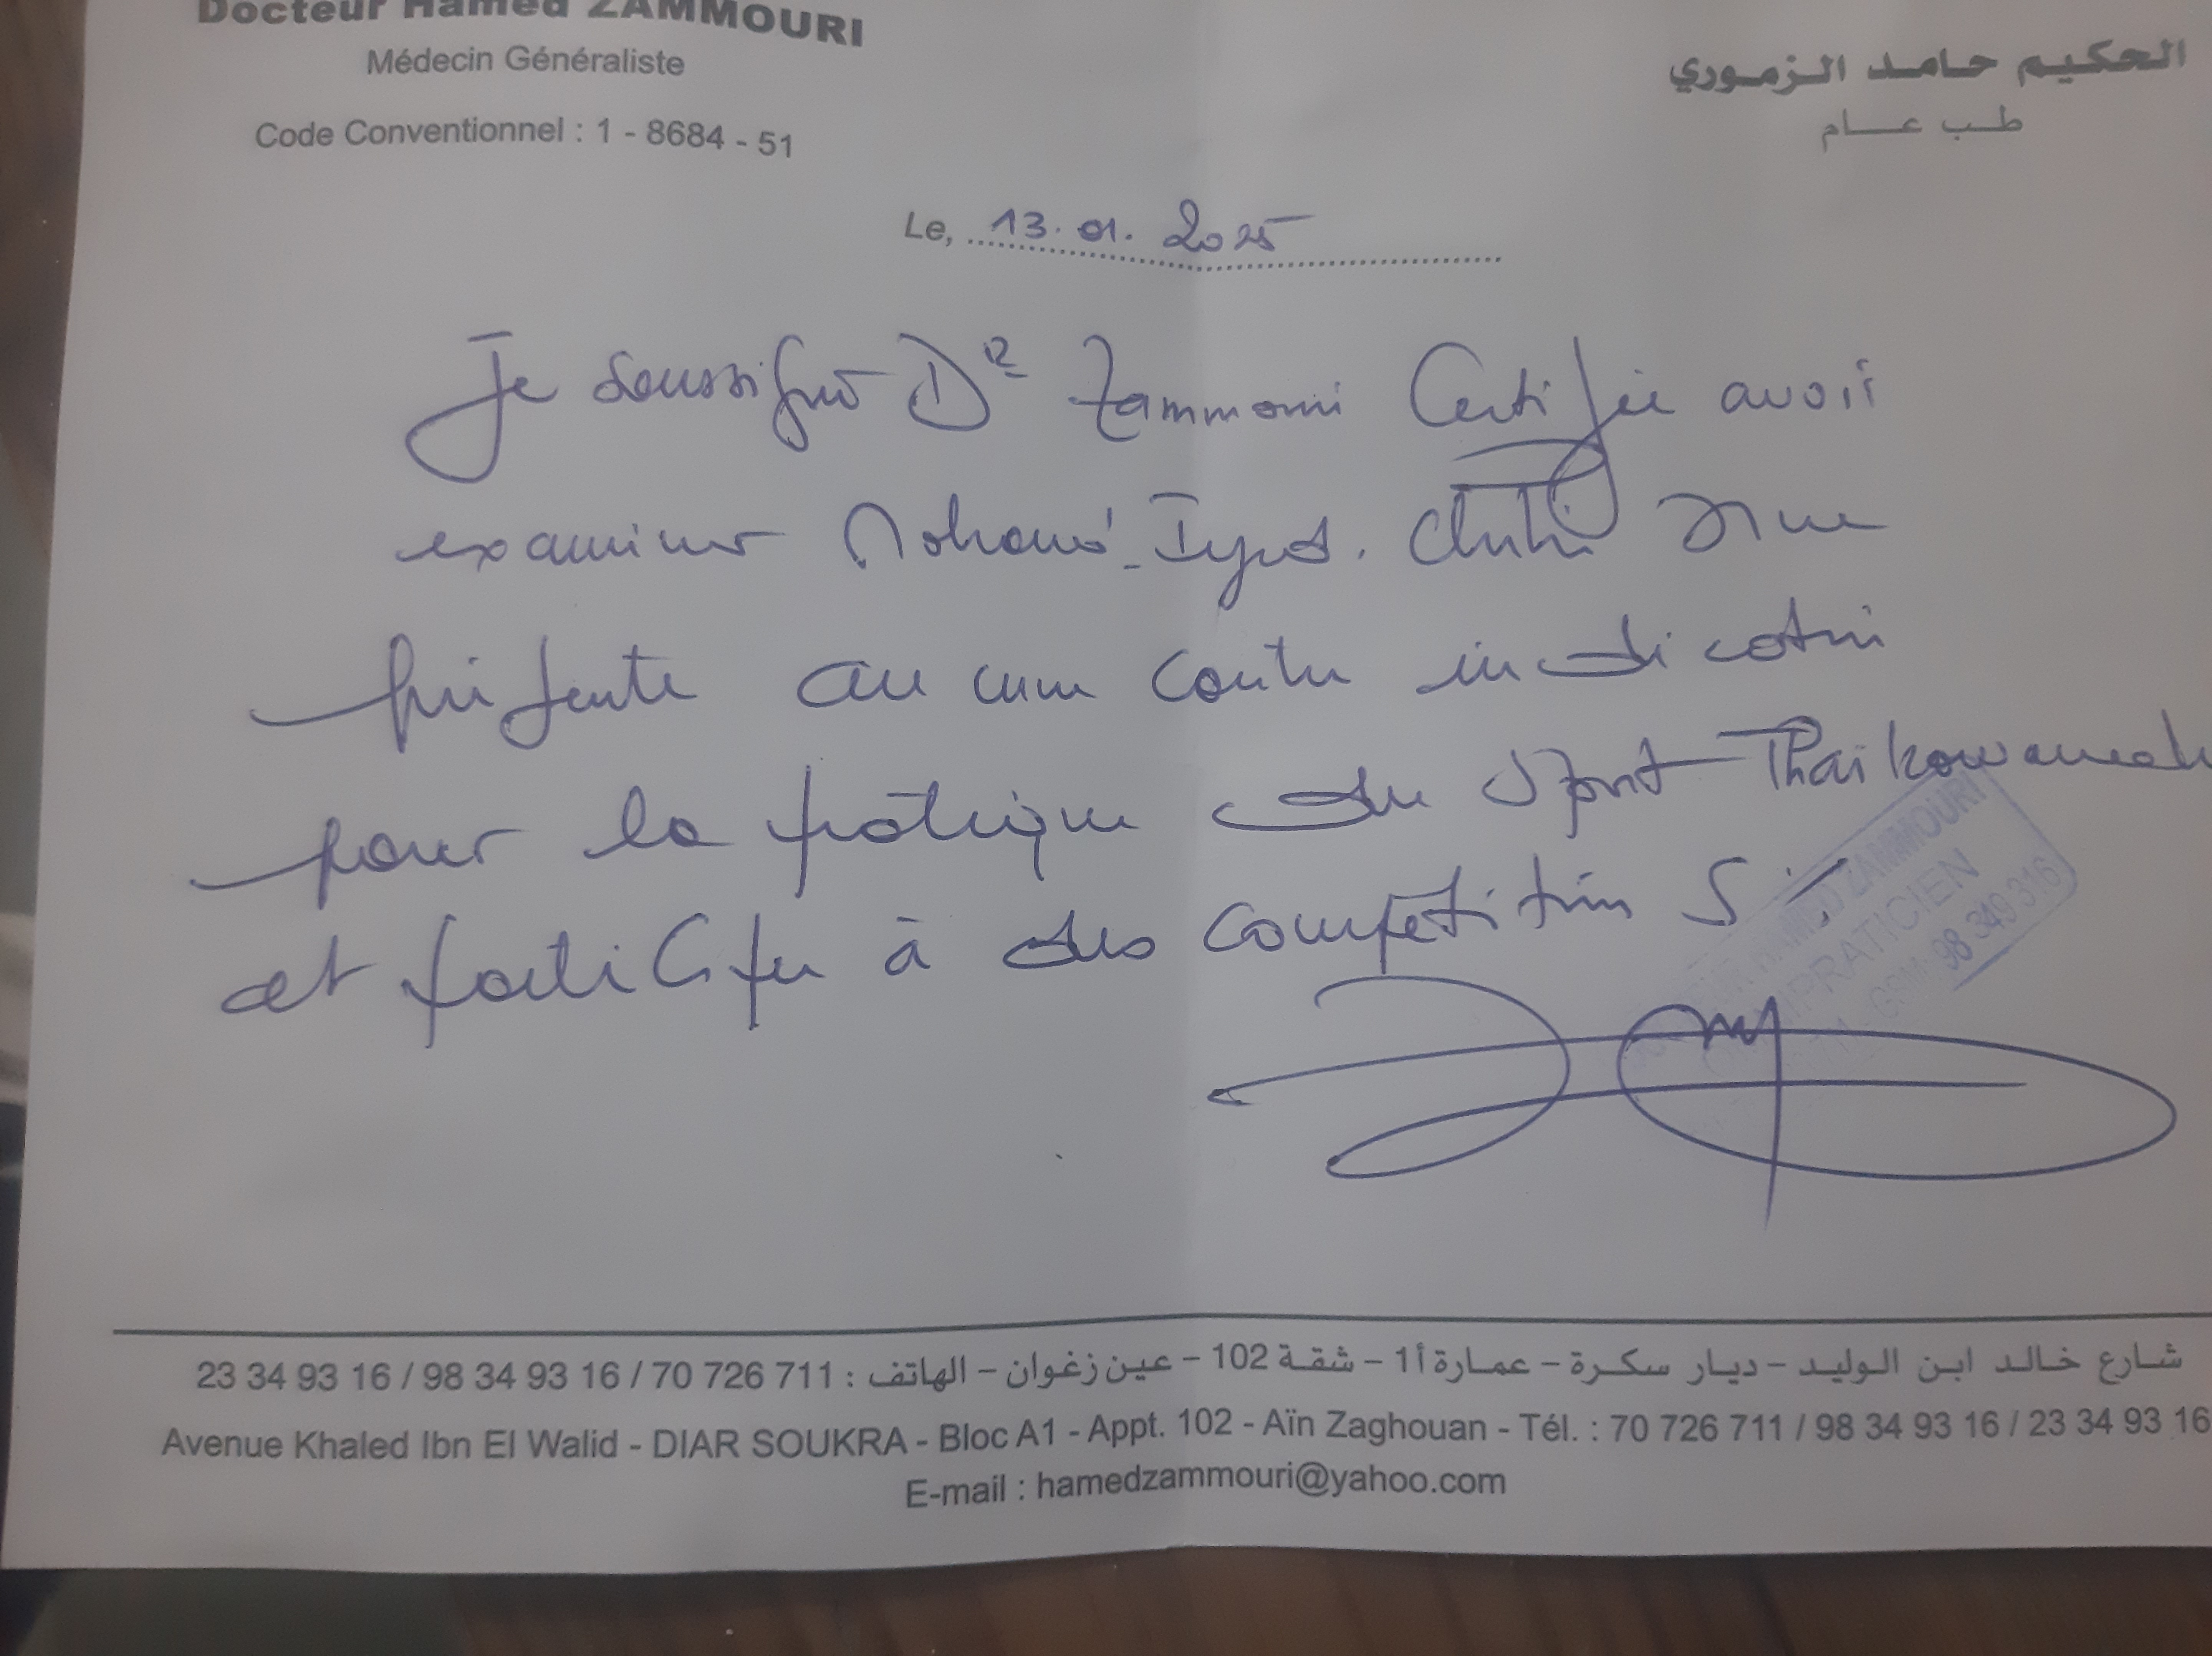 Docteur Hamed ZAMMOURI
Médecin Généraliste
Code Conventionnel : 1 - 8684 - 51
الحكيم حامد الزموري
طب عام
Le, 13.01.2025
Je soussigné Dr Zammouri Certifie avoir
examiner Mohamed Iyed. ne
présente aucune contre indication
pour la pratique du Sport Thaikowando
et participer à des competitions
HAMED ZAMMOURI
OMNIPRATICIEN
GSM 98 349 316
شارع خالد ابن الوليد - ديار سكرة - عمارة أ1 - شقة 102 - عين زغوان - الهاتف : 70 726 711 / 98 34 93 16 / 23 34 93 16
Avenue Khaled Ibn El Walid - DIAR SOUKRA - Bloc A1 - Appt. 102 - Aïn Zaghouan - Tél. : 70 726 711 / 98 34 93 16 / 23 34 93 16
E-mail : hamedzammouri@yahoo.com